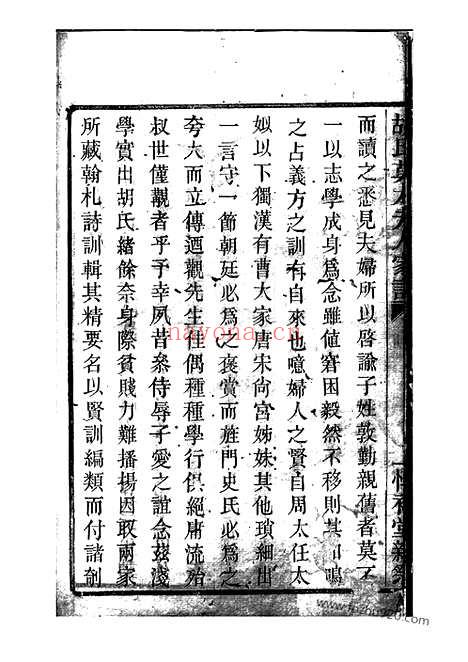 而讀之悉見夫婦所以啓諭子姓敦勤親舊者莫不
一以志學成身爲念雖値窘困毅然不移則其 鳴
之占義方之訓有自來也噫婦人之賢自周太任太
姒以下獨漢有曹大家唐宋尚宮姊妹其他瑣細出
一言守一節朝廷必爲之褒賞而旌門史氏必爲之
夸大而立傳迴觀先生佳偶種種學行俱絕庸流殆
叔世僅觀者乎予幸夙昔叅侍辱子愛之誼念茲淺
學實出胡氏緒餘奈身際貧賤力難播揚因取兩家
所藏翰札詩訓輯其精要名以賢訓編類而付諸剞
nayona.cn